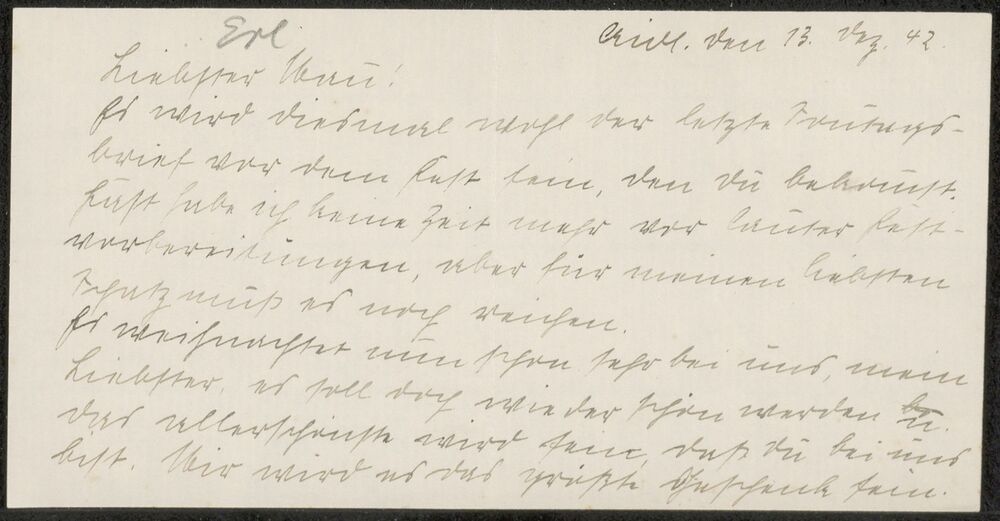 Erl.
den 13. Dez. 42.
Liebster Mann!
Es wird diesmal wohl der letzte Sonntags-
brief vor dem Fest sein, den du bekommst.
Fast habe ich keine Zeit mehr vor lauter Fest-
vorbereitungen, aber für meinen liebsten
Schatz muß es noch reichen.
Es weihnachtet nun schon sehr bei uns, mein
Liebster, es soll doch wieder schön werden u.
das allerschönste wird sein, daß du bei uns
bist. Mir wird es das größte Geschenk sein.